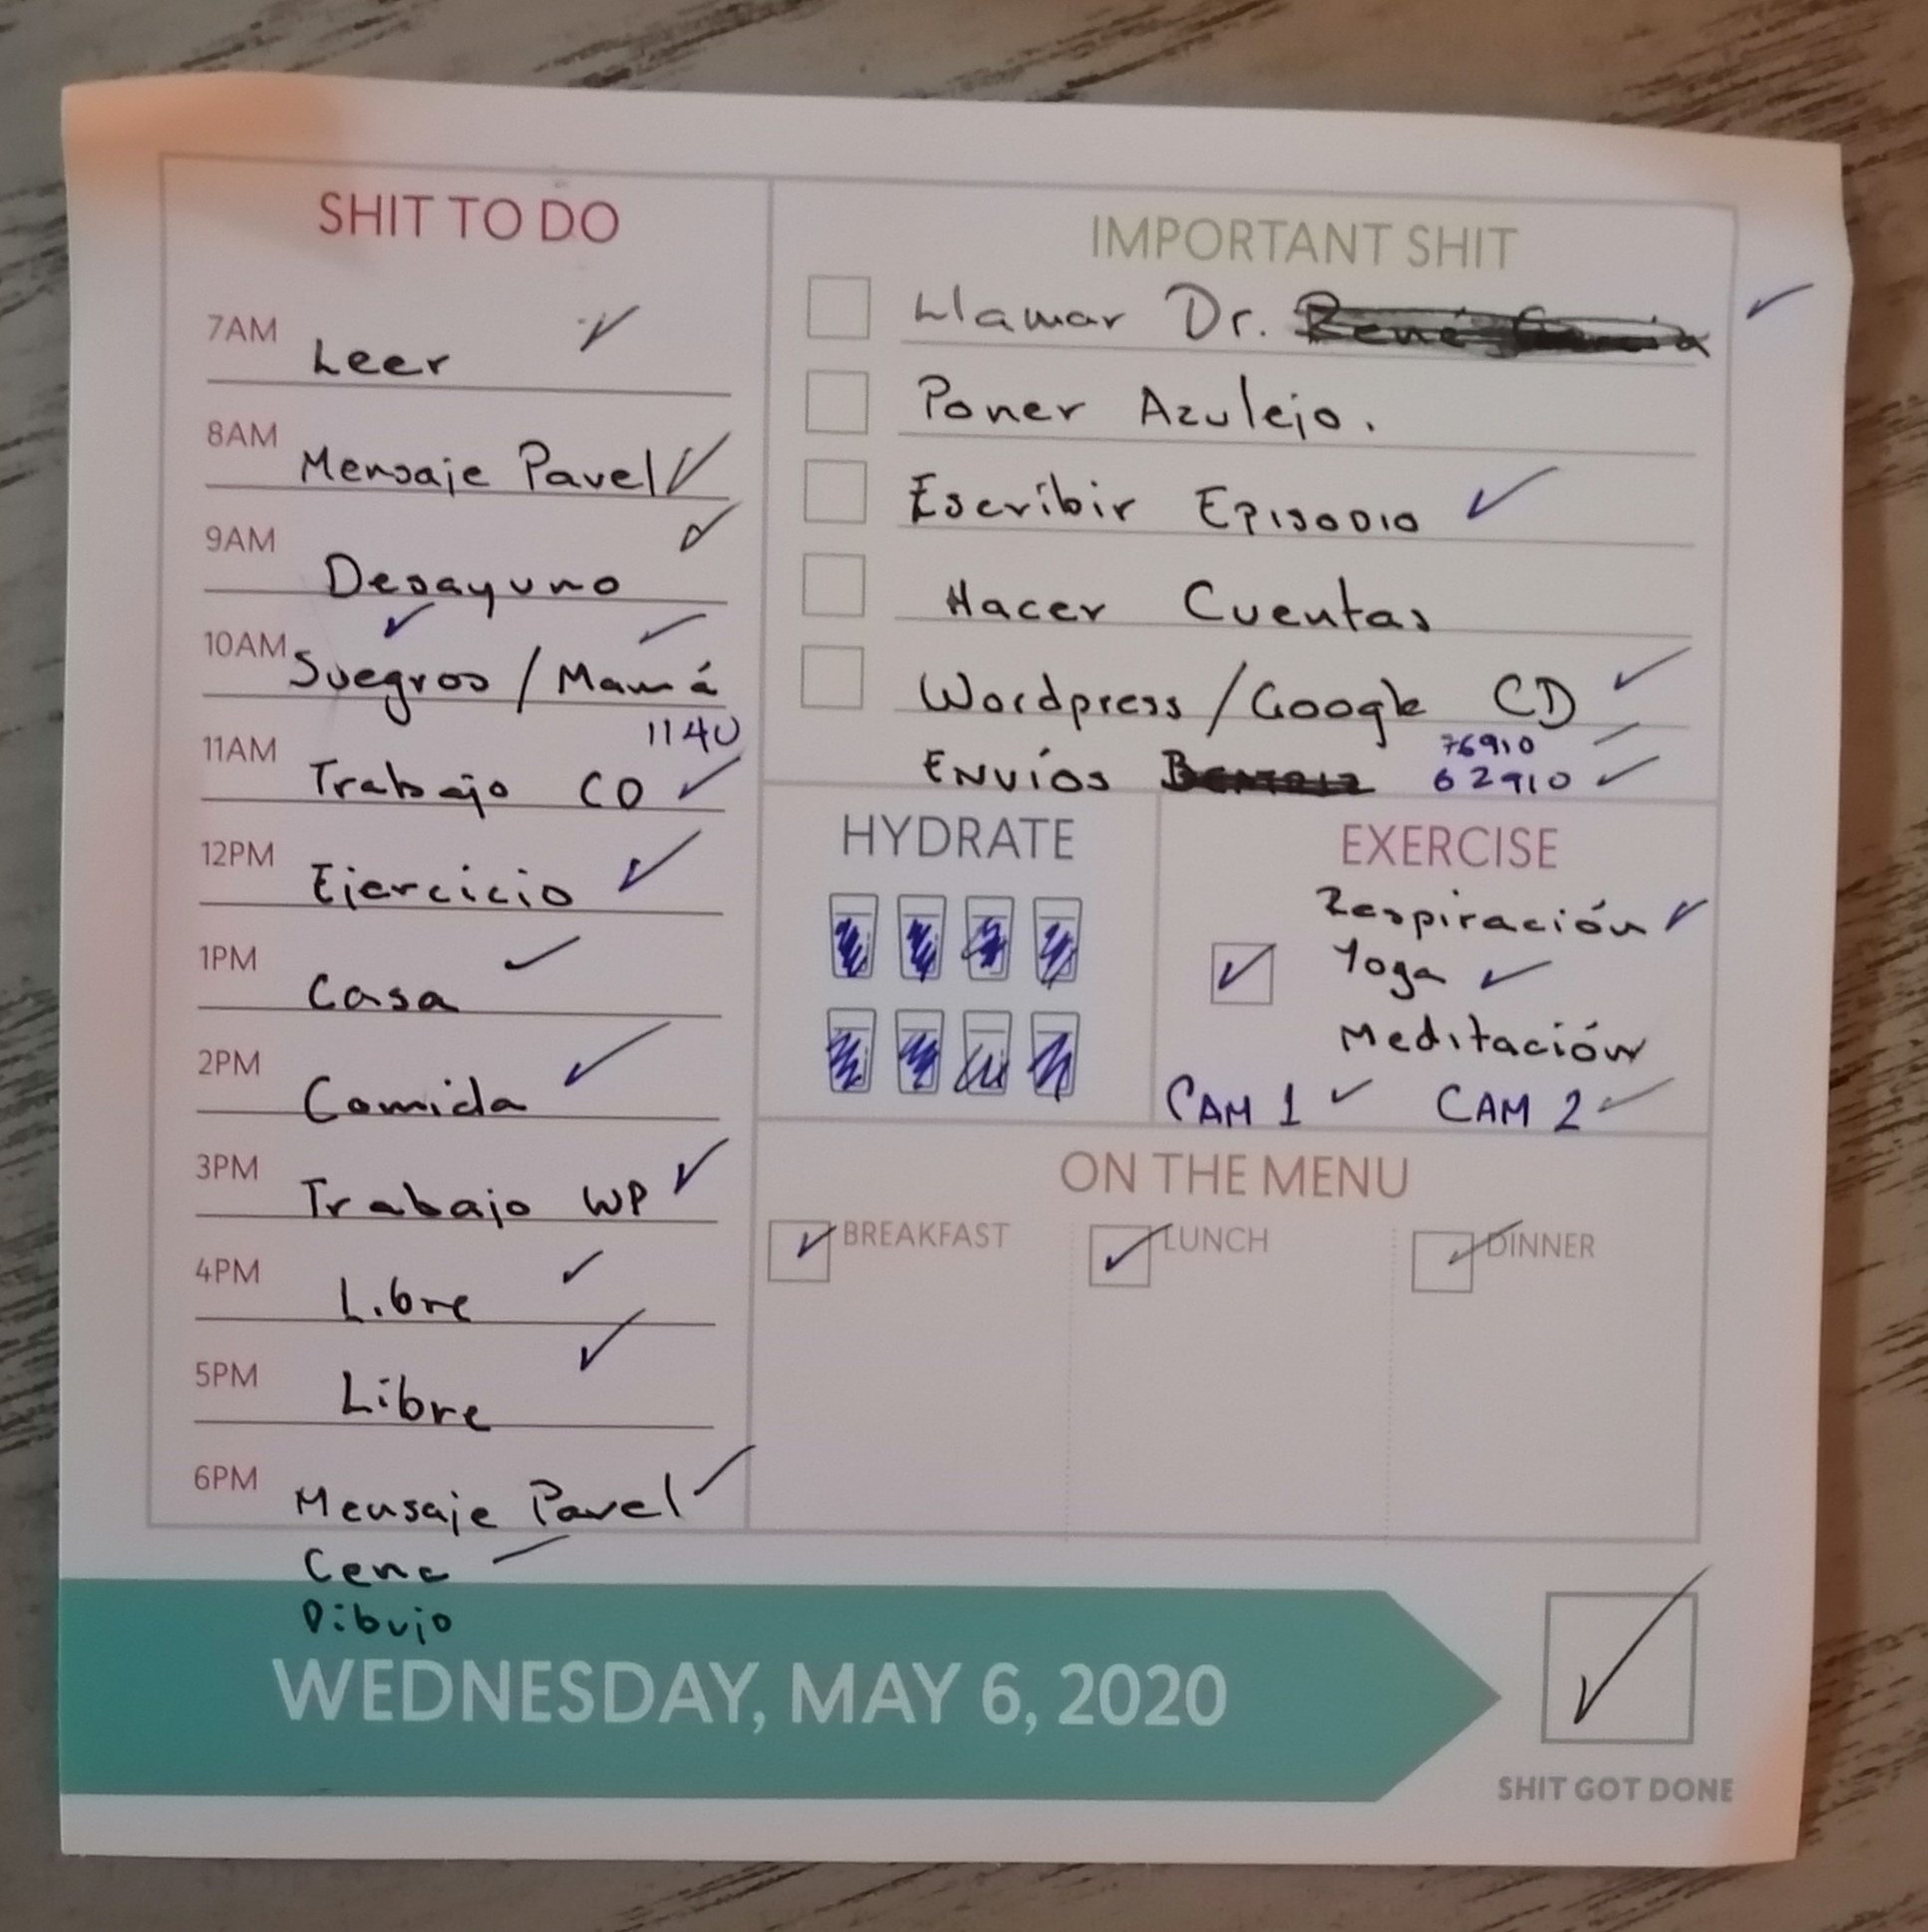 SHIT TO DO
7AM Leer
8AM Mensaje Pavel
9AM Desayuno
10AM Suegros / Mamá
1140
11AM Trabajo CD
12PM Ejercicio
1PM Casa
2PM Comida
3PM Trabajo WP
4PM Libre
5PM Libre
6PM Mensaje Pavel
Cena
Dibujo
IMPORTANT SHIT
Llamar Dr.
Poner Azulejo.
Escribir Episodio
Hacer Cuentas
Wordpress / Google CD
76910
Envíos 62910
HYDRATE
EXERCISE
Respiración
Yoga
Meditación
CAM 1 CAM 2
ON THE MENU
BREAKFAST LUNCH DINNER
WEDNESDAY, MAY 6, 2020
SHIT GOT DONE